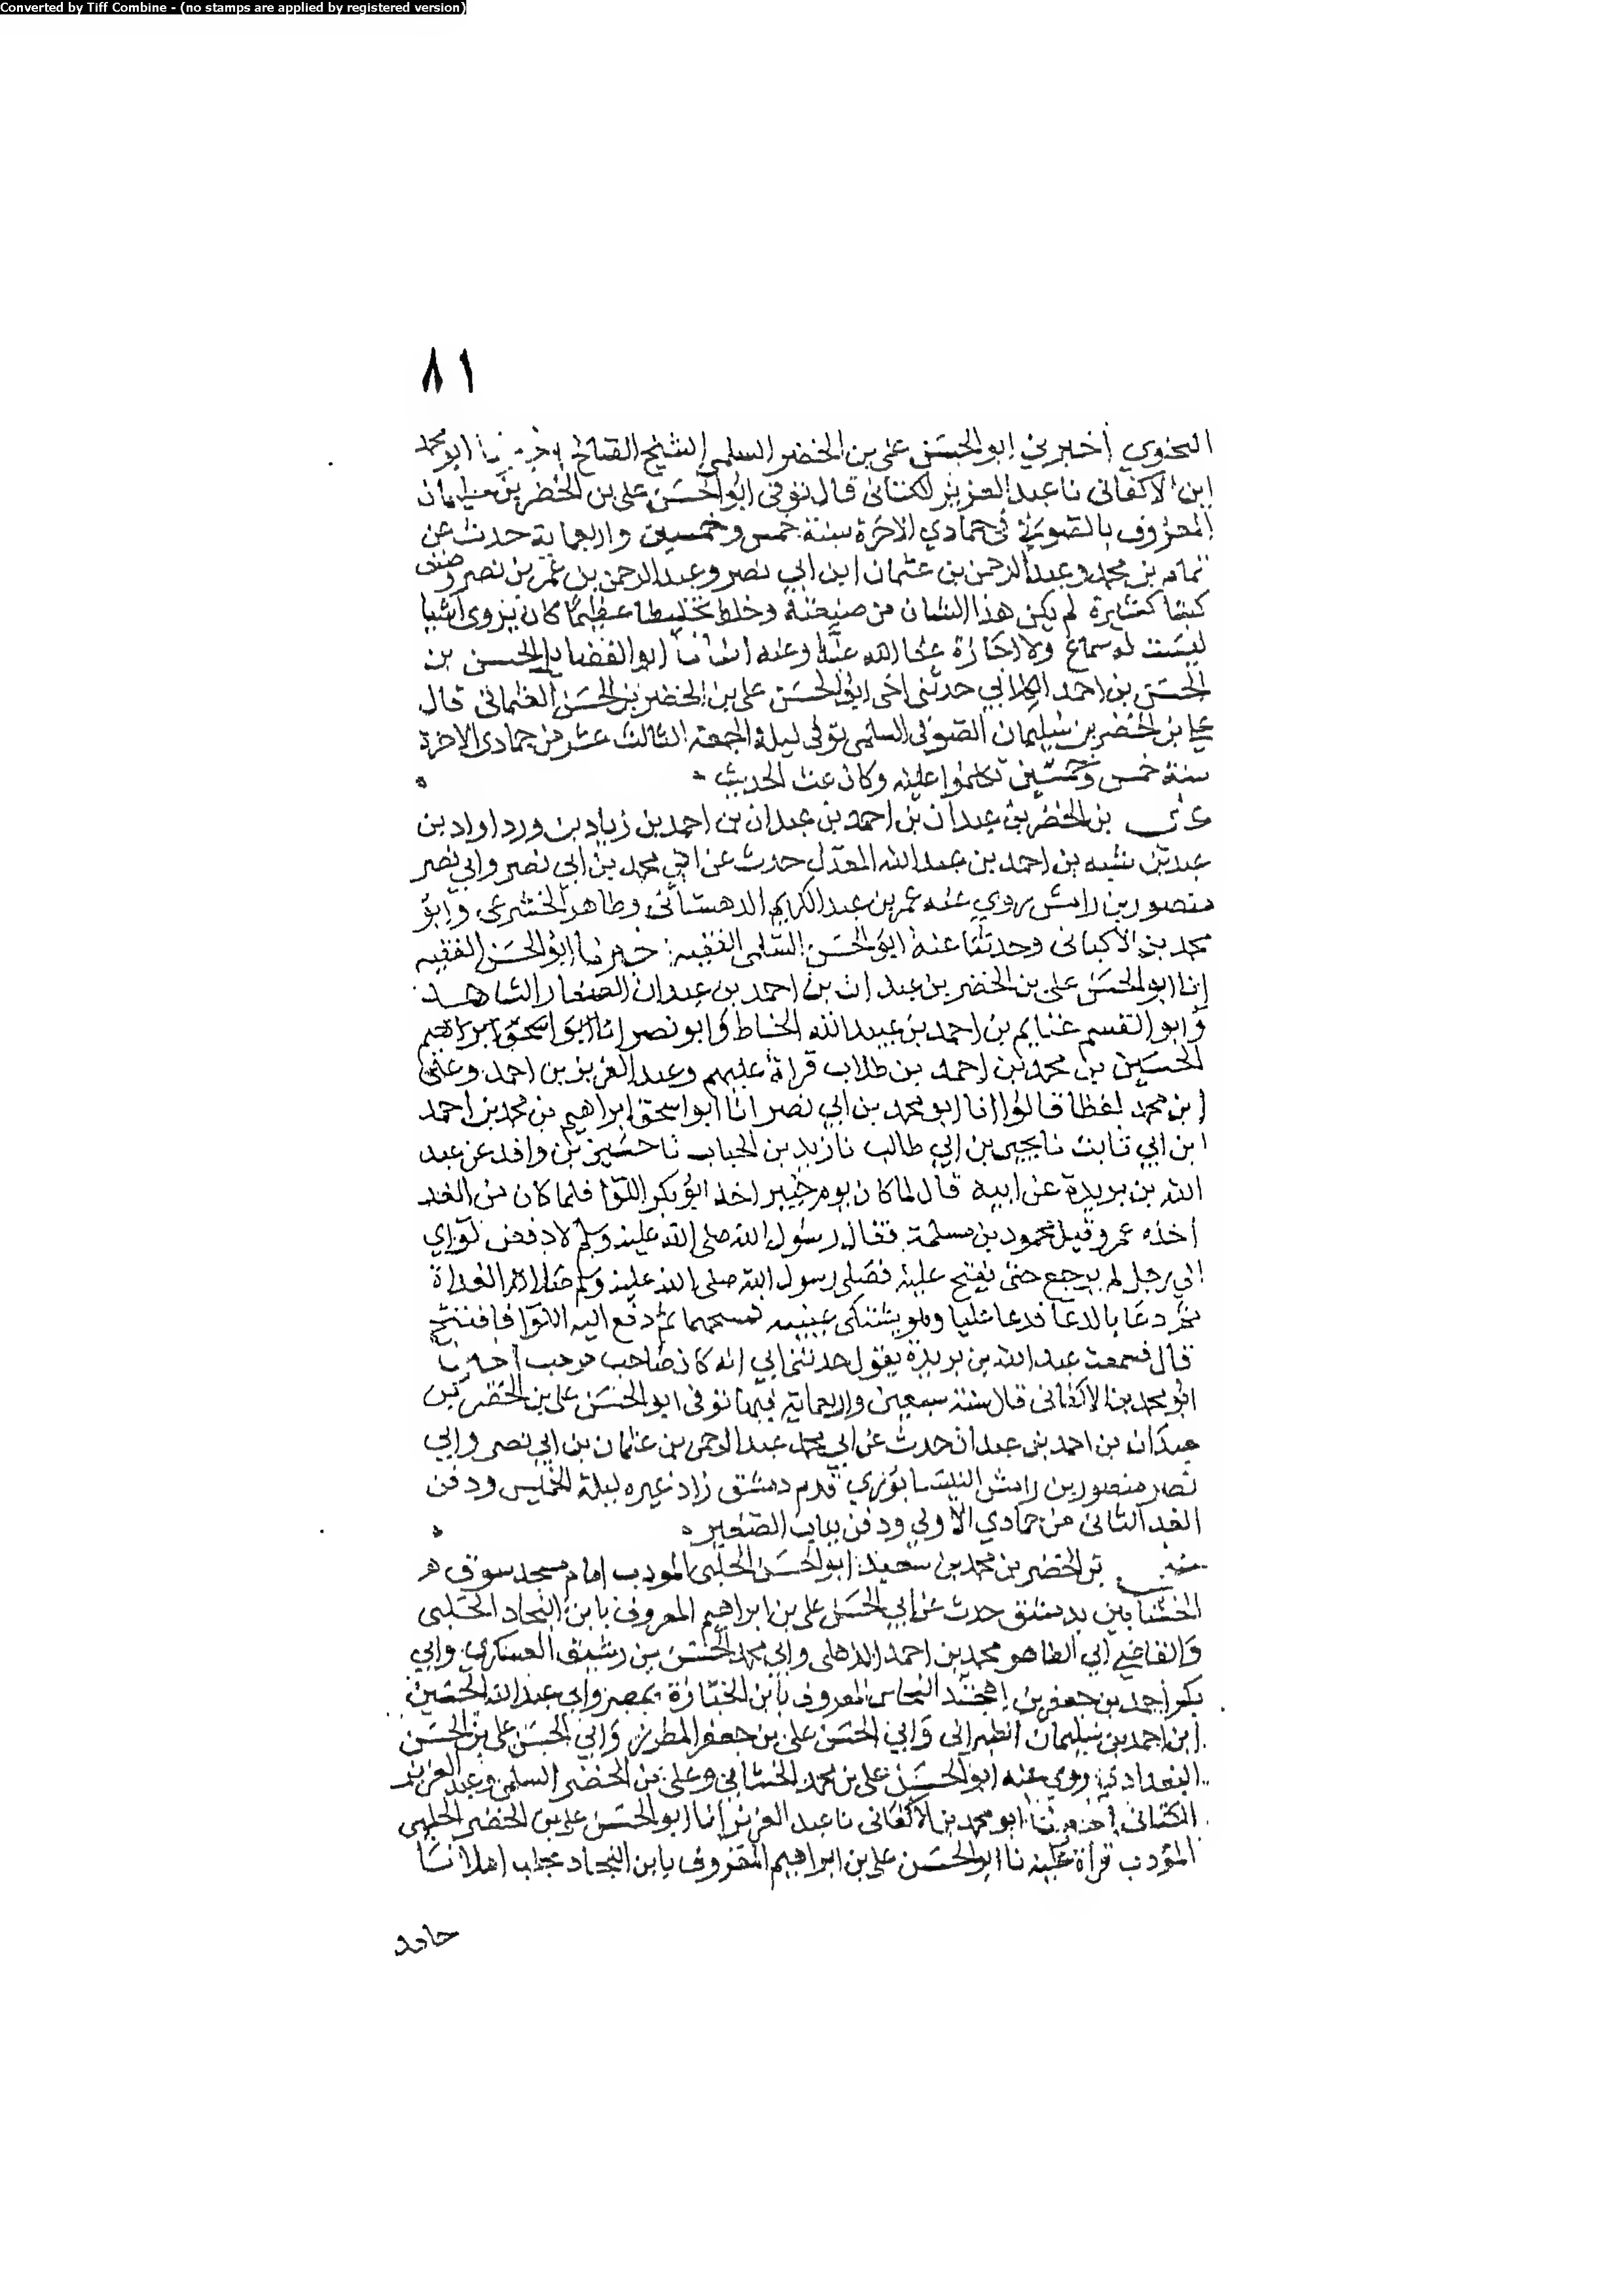 Converted by Tiff Combine - (no stamps are applied by registered version)
٨١
النحوي أخبرني ابو الحسن على بن الخضر السلمى الشيخ الصالح ابو محمد
ابن الاكفانى نا عبد العزيز الكتانى قال توفى ابو الحسن على بن الخضر بن سليمان
المعروف بالصوفي في جمادي الاخرة سنة خمس وخمسين واربعماية حدث عن
تمام بن محمد وعبد الرحمن بن عثمان ابن ابي نصر وعبد الرحمن بن عمر بن نصر وصنف
كتبا كثيرة لم يكن هذا الشان من صنعته وخلط تخليطا عظيما كان يروى اشيا
ليست له سماع ولا اجازة عفا الله عنا وعنه انبانا ابو الفضايل الحسن بن
الحسن بن احمد الكلابي حدثنى اخى ابو الحسن على بن الخضر بن الحسن العثمانى قال
على بن الخضر بن سليمان الصوفى السلمى توفى ليلة الجمعة الثالث عشر من جمادى الاخرة
سنة خمس وخمسين تكلموا عليه وكان غث الحديث
على بن الخضر بن عبدان بن احمد بن عبدان بن احمد بن زياد بن ورد اواد بن
عبد بن شبه بن احمد بن عبد الله المعدل حدث عن ابي محمد بن ابي نصر وابي نصر
منصور بن رامش روي عنه عمر بن عبد الكريم الدهستانى وطاهر الخشوعى وابو
محمد بن الاكفانى وحدثنا عنه ابو الحسن السلمى الفقيه اخبرنا ابو الحسن الفقيه
انا ابو الحسن على بن الخضر بن عبدان بن احمد بن عبدان الصفار الشاهد
وابو القسم غنايم بن احمد بن عبيد الله الخياط وابو نصر انا ابو اسحق ابراهيم
الحسين بن محمد بن احمد بن طلاب قراة عليهم وعبد العزيز بن احمد وعلى
ابن محمد لفظا قالوا انا ابو محمد بن ابي نصر انا ابو اسحق ابراهيم بن محمد بن احمد
ابن ابي ثابت نا يحيى بن ابي طالب نا زيد بن الحباب نا حسين بن واقد عن عبد
الله بن بريدة عن ابيه قال لما كان يوم خيبر اخذ ابو بكر اللوا فلما كان من الغد
اخذه عمر وقيل محمود بن مسلمة فقال رسول الله صلى الله عليه وسلم لادفعن لوآي
الي رجل لم يرجع حتى يفتح عليه فصلى رسول الله صلى الله عليه وسلم صلاة الغداة
ثم دعا بالدعا فدعا عليا وهو يشتكى عينيه فمسحهما ثم دفع اليه اللوا فافتتح
قال فسمعت عبد الله بن بريدة يقول حدثنى ابي انه كان صاحب مرحب اخبرنا
ابو محمد بن الاكفانى قال سنة سبعين واربعماية فيها توفى ابو الحسن على بن الخضر بن
عبدان بن احمد بن عبدان حدث عن ابي محمد عبد الرحمن بن عثمان بن ابي نصر وابي
نصر منصور بن رامش النيسابوري قدم دمشق زاد غيره ليلة الخميس ودفن
الغد الثانى من جمادي الاولي ودفن بباب الصغير
على بن الخضر بن محمد بن سعيد ابو الحسن الحلبى المودب امام مسجد سوق
الخشابين بدمشق حدث عن ابي الحسن على بن ابراهيم المعروف بابن النجاد الحلبى
والقاضي ابي الطاهر محمد بن احمد الذهلى وابي محمد الحسن بن رشيق العسكري وابي
بكر احمد بن جعفر بن احمد النحاس المعروف بابن الخبازة بمصر وابي عبد الله الحسين
ابن احمد بن سليمان الطبرانى وابي الحسن على بن جعفر المطرز وابي الحسن على بن الحسن
البغدادي روي عنه ابو الحسن على بن محمد الحنائي وعلى بن الخضر السلمى وعبد العزيز
الكتانى اخبرنا ابو محمد بن الاكفانى نا عبد العزيز انا ابو الحسن على بن الخضر الحلبى
المؤدب قراة عليه نا ابو الحسن على بن ابراهيم المعروف بابن النجاد بحلب املا نا
حامد